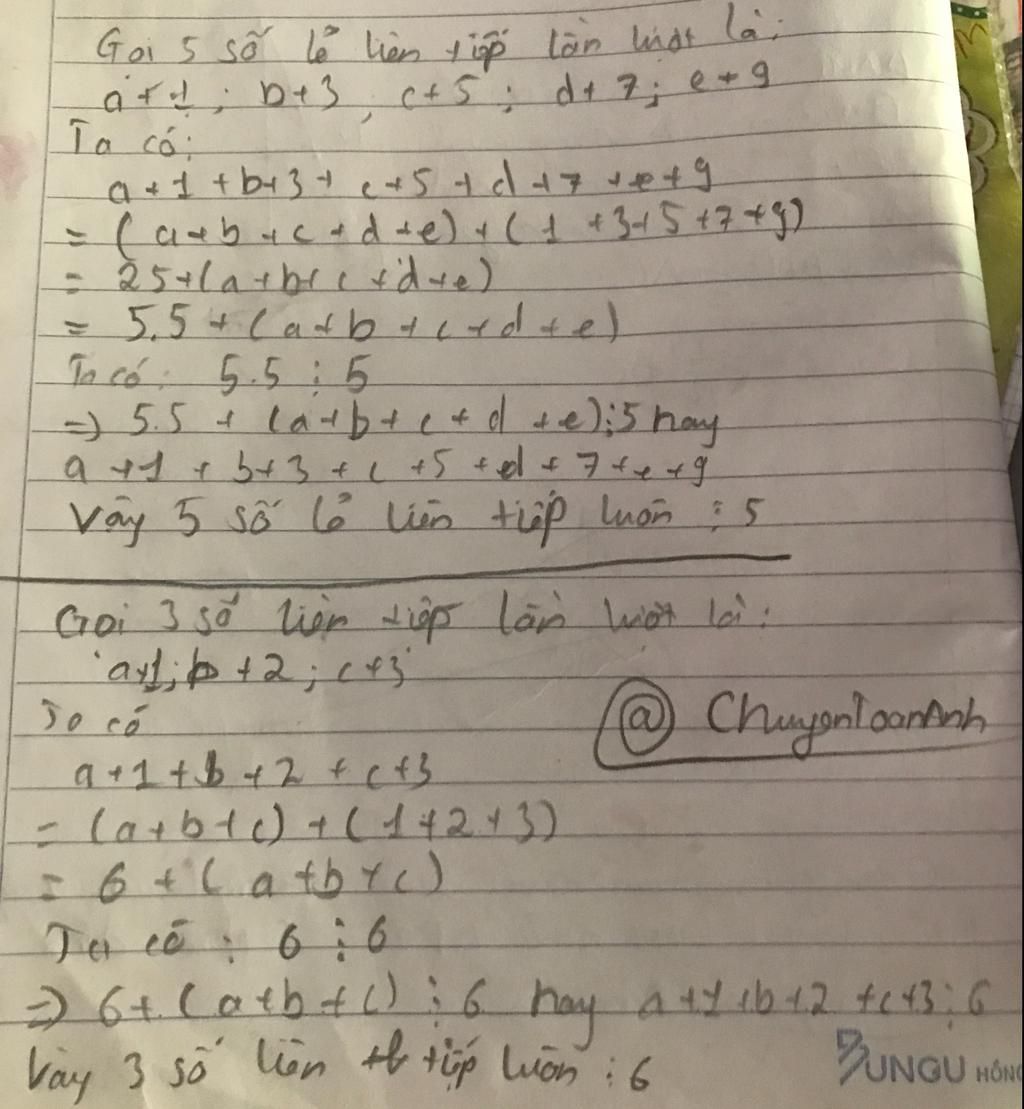 Gọi 5 số lẻ liên tiếp lần lượt là:
a+1; b+3, c+5; d+7; e+9
Ta có:
a+1+b+3+c+5+d+7+e+9
= (a+b+c+d+e)+(1+3+5+7+9)
= 25+(a+b+c+d+e)
= 5.5+(a+b+c+d+e)
Ta có: 5.5⋮5
=> 5.5+(a+b+c+d+e)⋮5 hay
a+1+b+3+c+5+d+7+e+9
Vậy 5 số lẻ liên tiếp luôn ⋮5
Gọi 3 số liên tiếp lần lượt là:
a+1; b+2; c+3
Ta có
@ ChuyenToanAnh
a+1+b+2+c+3
= (a+b+c)+(1+2+3)
= 6+(a+b+c)
Ta có: 6⋮6
=> 6+(a+b+c)⋮6 hay a+1+b+2+c+3⋮6
Vậy 3 số liên tiếp luôn ⋮6
UNGU HỒNG